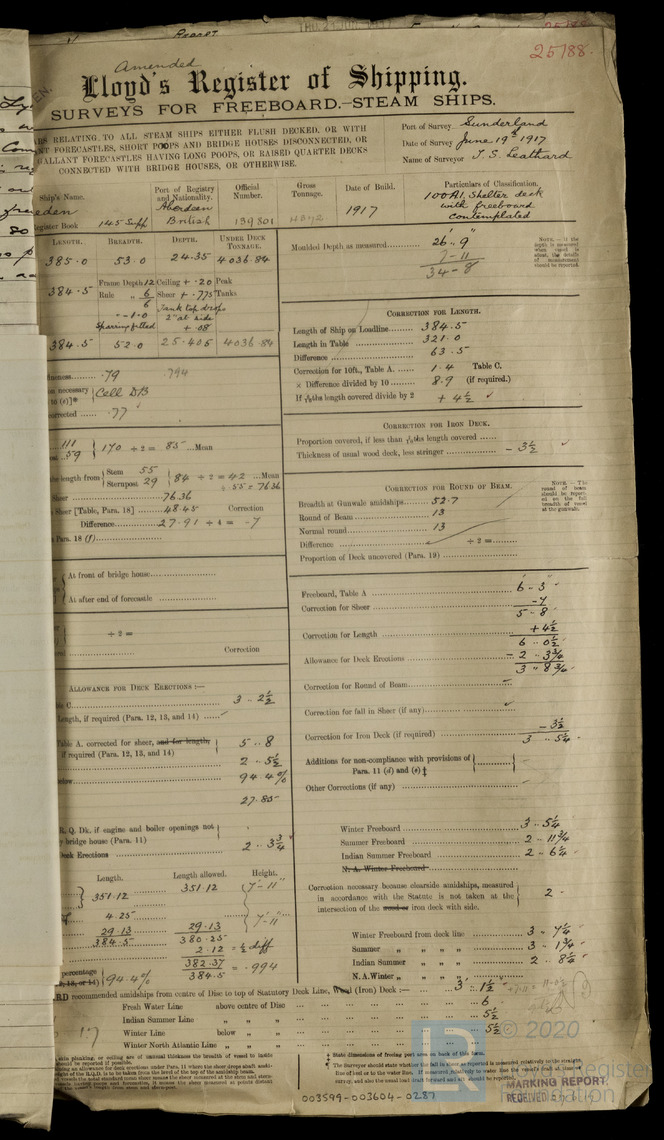 25188.
Amended
Lloyd's Register of Shipping.
SURVEYS FOR FREEBOARD.—STEAM SHIPS.
RS RELATING TO ALL STEAM SHIPS EITHER FLUSH DECKED, OR WITH
NT FORECASTLES, SHORT POOPS AND BRIDGE HOUSES DISCONNECTED, OR
GALLANT FORECASTLES HAVING LONG POOPS, OR RAISED QUARTER DECKS
CONNECTED WITH BRIDGE HOUSES, OR OTHERWISE.
Port of Survey Sunderland
Date of Survey June 19th 1917
Name of Surveyor J. S. Leathard
Ship's Name.
Port of Registry and Nationality.
Official Number.
Gross Tonnage.
Date of Build.
Particulars of Classification.
Aberdeen
British
139801
1917
100A1. Shelter deck
with freeboard
contemplated
Register Book 145 Supp
LENGTH. BREADTH. DEPTH. UNDER DECK TONNAGE.
385.0 53.0 24.35 4036.84
384.5 Frame Depth 12 Ceiling + .20 Peak
Rule " 6 Sheer + .775 Tanks
6 Tank top drops
--1.0 2" at side
Sparring fitted + .08
384.5 52.0 25.405 4036.84
Moulded Depth as measured 26 .. 9
7-11
34-8
CORRECTION FOR LENGTH.
Length of Ship on Loadline 384.5
Length in Table 321.0
Difference 63.5
Correction for 10ft., Table A. 1.4 Table C.
× Difference divided by 10 8.9 (if required.)
If 6/10ths length covered divide by 2 + 4½
.79 .794
Cell DB
corrected .77
CORRECTION FOR IRON DECK.
Proportion covered, if less than 7/10ths length covered
Thickness of usual wood deck, less stringer - 3½
111
.59 } 170 ÷ 2 = 85 Mean
the length from { Stem 55
Sternpost 29 } 84 ÷ 2 = 42 Mean
÷ .55 = 76.36
Sheer 76.36
Sheer [Table, Para. 18] 48.45 Correction
Difference 27.91 ÷ 4 = -7
Para. 18 (f)
CORRECTION FOR ROUND OF BEAM.
Breadth at Gunwale amidships 52.7
Round of Beam 13
Normal round 13
Difference ÷ 2 =
Proportion of Deck uncovered (Para. 19)
At front of bridge house
At after end of forecastle
÷ 2 =
Correction
Freeboard, Table A 6 - 3
Correction for Sheer -7
5 - 8
Correction for Length + 4½
6 .. 0½
Allowance for Deck Erections - 2 .. 3¾
3 .. 8¾
Correction for Round of Beam
Correction for fall in Sheer (if any)
Correction for Iron Deck (if required) - 3½
3 .. 5¼
Additions for non-compliance with provisions of
Para. 11 (d) and (e) ‡
Other Corrections (if any)
ALLOWANCE FOR DECK ERECTIONS :—
3 .. 2½
Length, if required (Para. 12, 13, and 14)
Table A. corrected for sheer, and for length, 5 .. 8
if required (Para. 12, 13, and 14)
2 .. 5½
94.4%
27.85
R. Q. Dk. if engine and boiler openings not
y bridge house (Para. 11)
Deck Erections 2 .. 3¾
Winter Freeboard 3 .. 5¼
Summer Freeboard 2 .. 11¾
Indian Summer Freeboard 2 .. 6¼
N. A. Winter Freeboard
Length. Length allowed. Height.
351.12 351.12 7-11
4.25 7-11
29.13 29.13
384.5 380.25
2.12 = ½ diff
382.37
384.5 = .994
percentage
94.4%
Correction necessary because clearside amidships, measured
in accordance with the Statute is not taken at the
intersection of the wood or iron deck with side. 2 -
Winter Freeboard from deck line 3 .. 7¼
Summer " " " " 3 .. 1¾
Indian Summer " " " 2 .. 8¼
N. A. Winter " " " "
RD recommended amidships from centre of Disc to top of Statutory Deck Line, Wood (Iron) Deck :— 3' .. 1½"
Fresh Water Line above centre of Disc 6
Indian Summer Line " " " 5½
Winter Line below " " 5½
Winter North Atlantic Line " " "
‡ State dimensions of freeing port area on back of this form.
MARKING REPORT.
RECEIVED
© 2020
003599-003604-0287